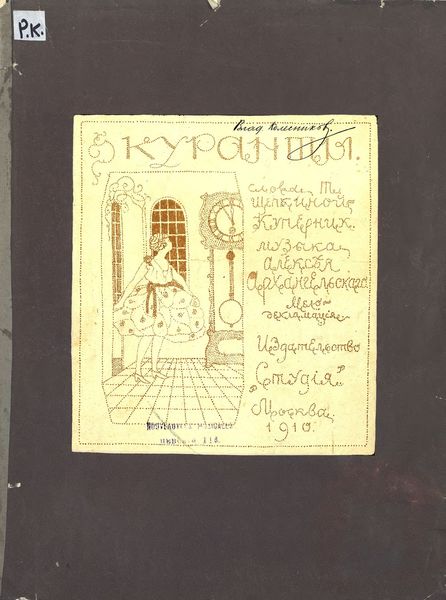 Р.К.
Влад. Колесников.
КУРАНТЫ.
Слова Т.
Щепкиной
Куперник.
музыка
Алексея
Архангельскаго
Мело-
декламация
Издательство
„Студiя"
Москва.
1910.